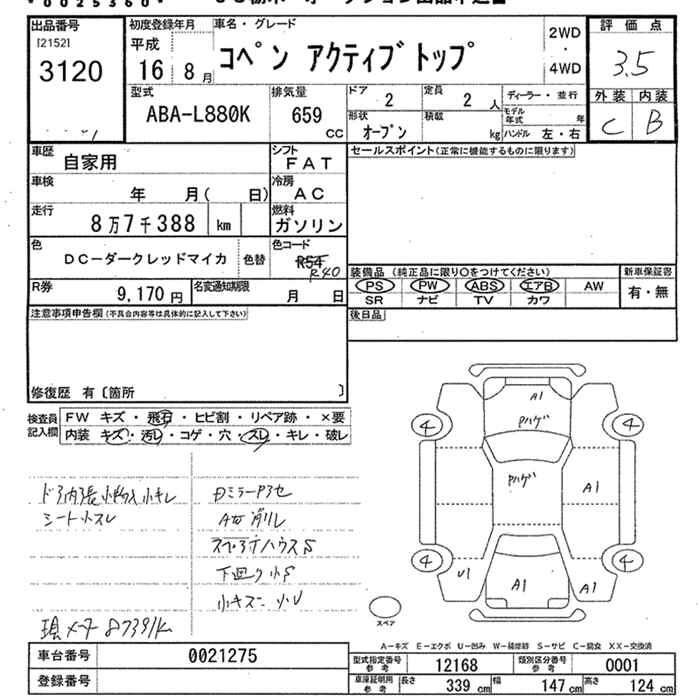 *0025360*
出品番号
[2152]
3120
初度登録年月
平成
16 8月
車名・グレード
コペン アクティブトップ
2WD
・
4WD
評価点
3.5
外装 内装
C B
型式
ABA-L880K
排気量
659
cc
ドア
2
定員
2 人
ディーラー・並行
モデル年式 年
形状
オープン
積載
kg
ハンドル 左・右
車歴
自家用
シフト
FAT
セールスポイント(正常に機能するものに限ります)
車検
年 月( 日)
冷房
AC
走行
8万7千388 km
燃料
ガソリン
色
DC-ダークレッドマイカ
色替
色コード
R54
R40
装備品 (純正品に限り○をつけてください)
新車保証書
PS PW ABS エアB AW
有・無
SR ナビ TV カワ
R券
9,170円
名変通知期限
月 日
後日品
注意事項申告欄(不具合内容等は具体的に記入して下さい)
修復歴 有〔箇所 〕
検査員記入欄
FW キズ・飛石・ヒビ割・リペア跡・×要
内装 キズ・汚レ・コゲ・穴・スレ・キレ・破レ
シート小スレ
下回り小S
小キズ・小U
現メータ 87391K
A1
Pハゲ
4 4
Pハゲ
A1
4 4
U1 A1 A1
スペア
A-キズ E-エクボ U-凹み W-補修跡 S-サビ C-腐食 XX-交換済
車台番号
0021275
型式指定番号
参考
12168
類別区分番号
参考
0001
登録番号
車庫証明用
参考
長さ 339 cm 幅 147 cm 高さ 124 cm